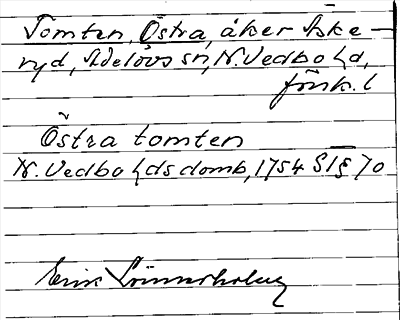 Tomten, Östra, åker Aske-
ryd, Adelövs sn, N. Vedbo hd,
Jönk. l
Östra tomten
N. Vedbo hds domb, 1754 § 70
Erik Lönnerholm